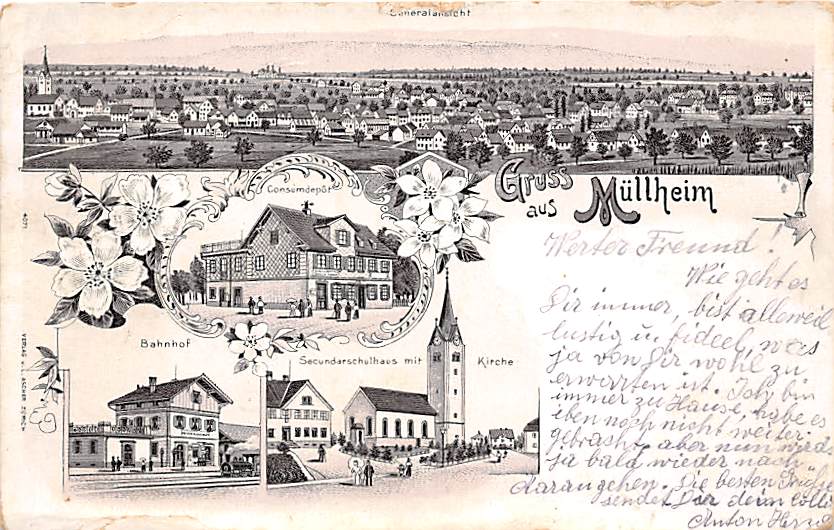 Generalansicht
Gruss
aus Müllheim
Consumdepôt
Bahnhof
Secundarschulhaus mit Kirche
4071
VERLAG ASCHER ZÜRICH
Werter Freund!
Wie geht es
Dir immer, bist alleweil
lustig u. fideel, was
ja von Dir wohl zu
erwarten ist. Ich bin
immer zu Hause, habe es
eben noch nicht weiter
gebracht, aber nun wird's
ja bald wieder nach
darangehen. Die besten
sendet Dir dein
Anton